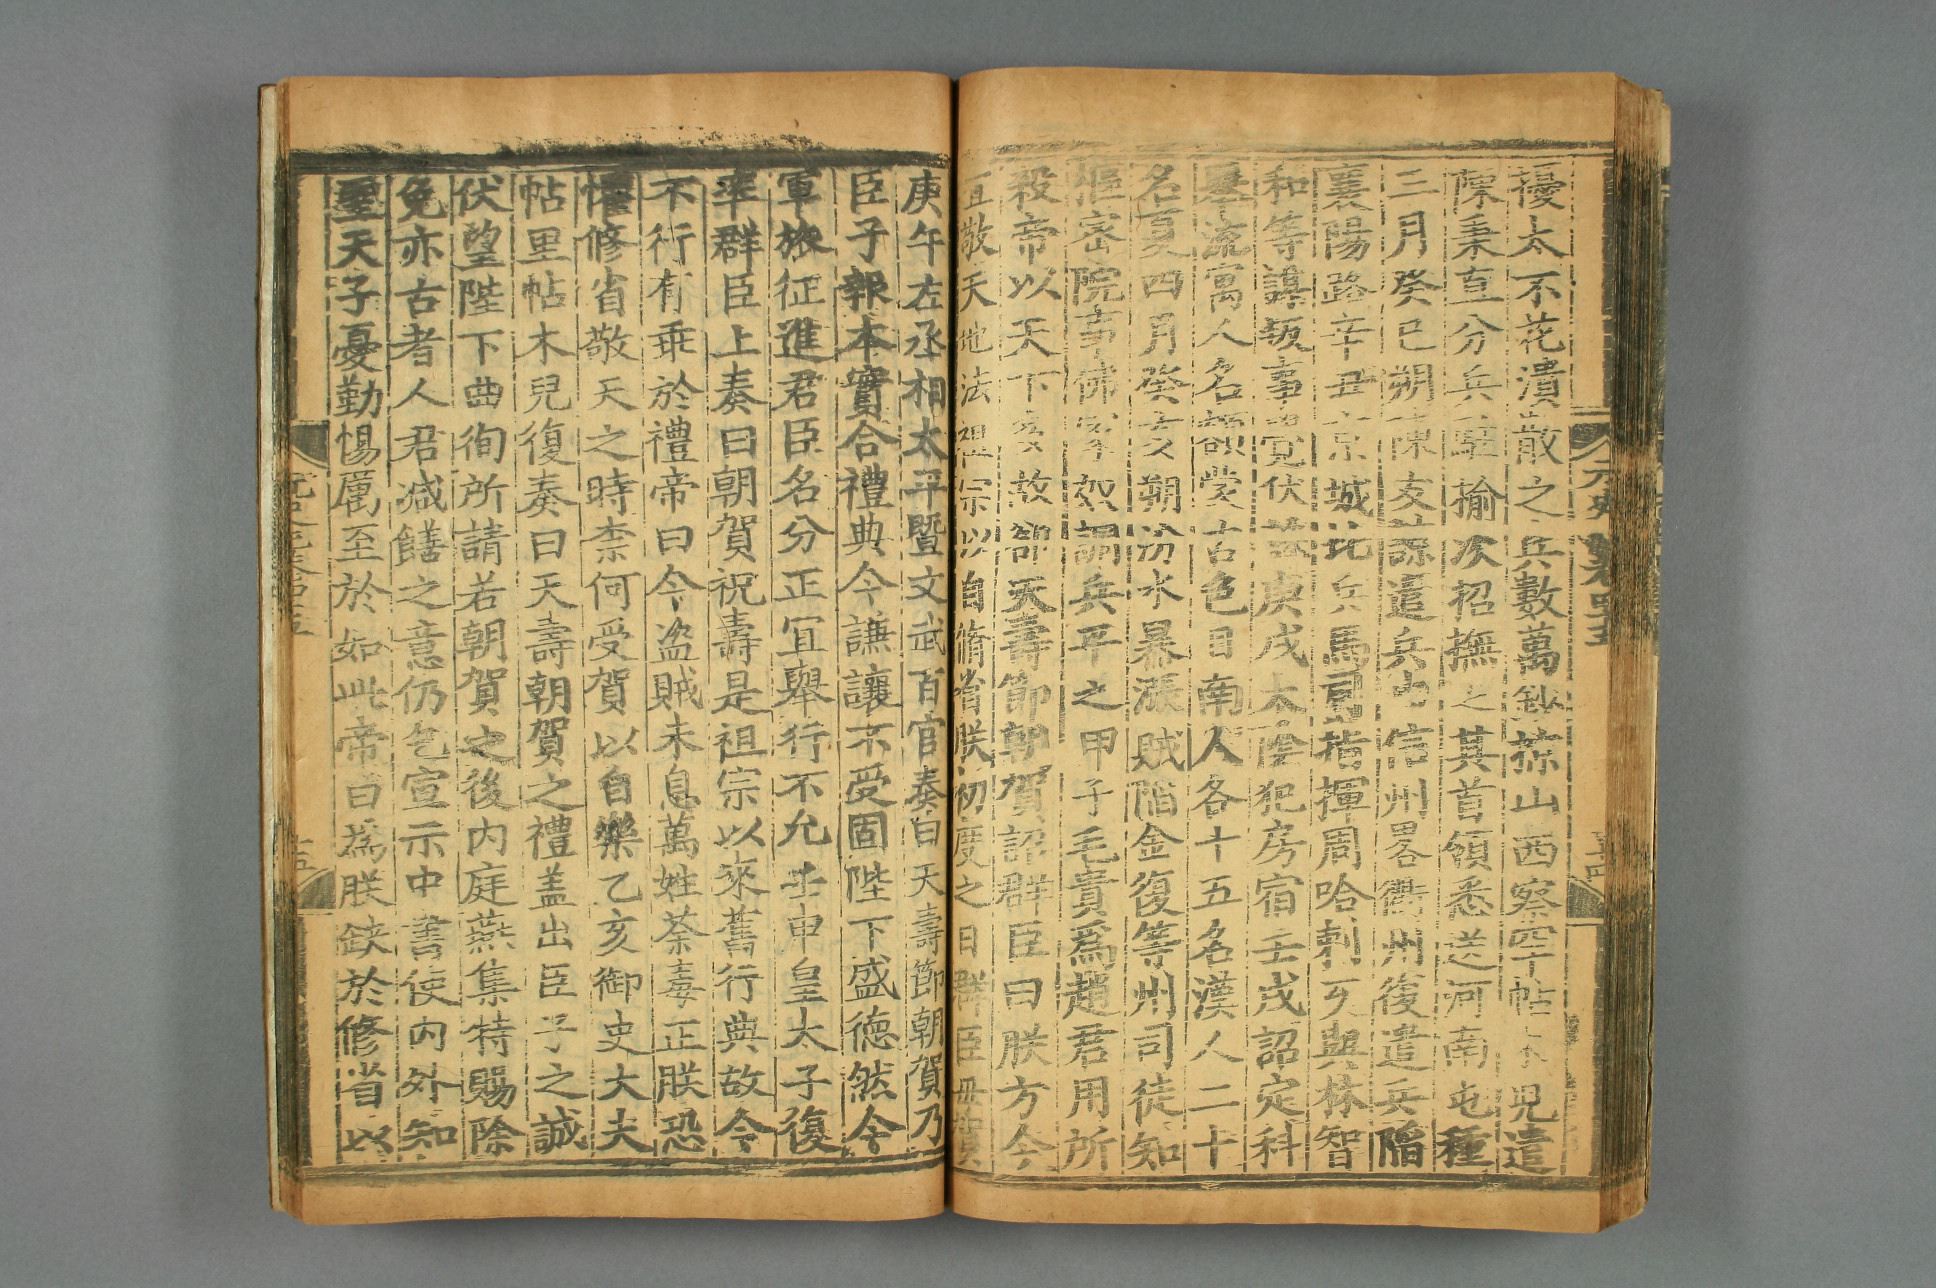 擾太不花潰散之兵數萬鈔掠山西察罕帖木兒遣
陳秉直分兵駐榆次招撫之其首領悉送河南屯種
三月癸巳朔陳友諒遣兵由信州畧衢州復遣兵陷
襄陽路辛丑京城北兵馬司指揮周哈剌歹與林智
和等謀叛事覺伏誅庚戌太陰犯房宿壬戌詔定科
舉流寓人名額蒙古色目南人各十五名漢人二十
名夏四月癸亥朔汾水暴漲賊陷金復等州司徒知
樞密院事佛家奴調兵平之甲子毛貴爲趙君用所
殺帝以天下多故却天壽節朝賀詔群臣曰朕方今
宜敬天地法祖宗以自脩省朕初度之日群臣毋賀
庚午左丞相太平暨文武百官奏曰天壽節朝賀乃
臣子報本實合禮典今謙讓不受固陛下盛德然今
軍旅征進君臣名分正宜舉行不允壬申皇太子復
率群臣上奏曰朝賀祝壽是祖宗以來舊行典故今
不行有乖於禮帝曰今盜賊未息萬姓荼毒正朕恐
懼修省敬天之時柰何受賀以自樂乙亥御史大夫
帖里帖木兒復奏曰天壽朝賀之禮盖出臣子之誠
伏望陛下曲徇所請若朝賀之後內庭燕集特賜除
免亦古者人君减饍之意仍乞宣示中書使內外知
聖天子憂勤惕厲至於如此帝曰爲朕缺於修省以
元史卷四十五
十五